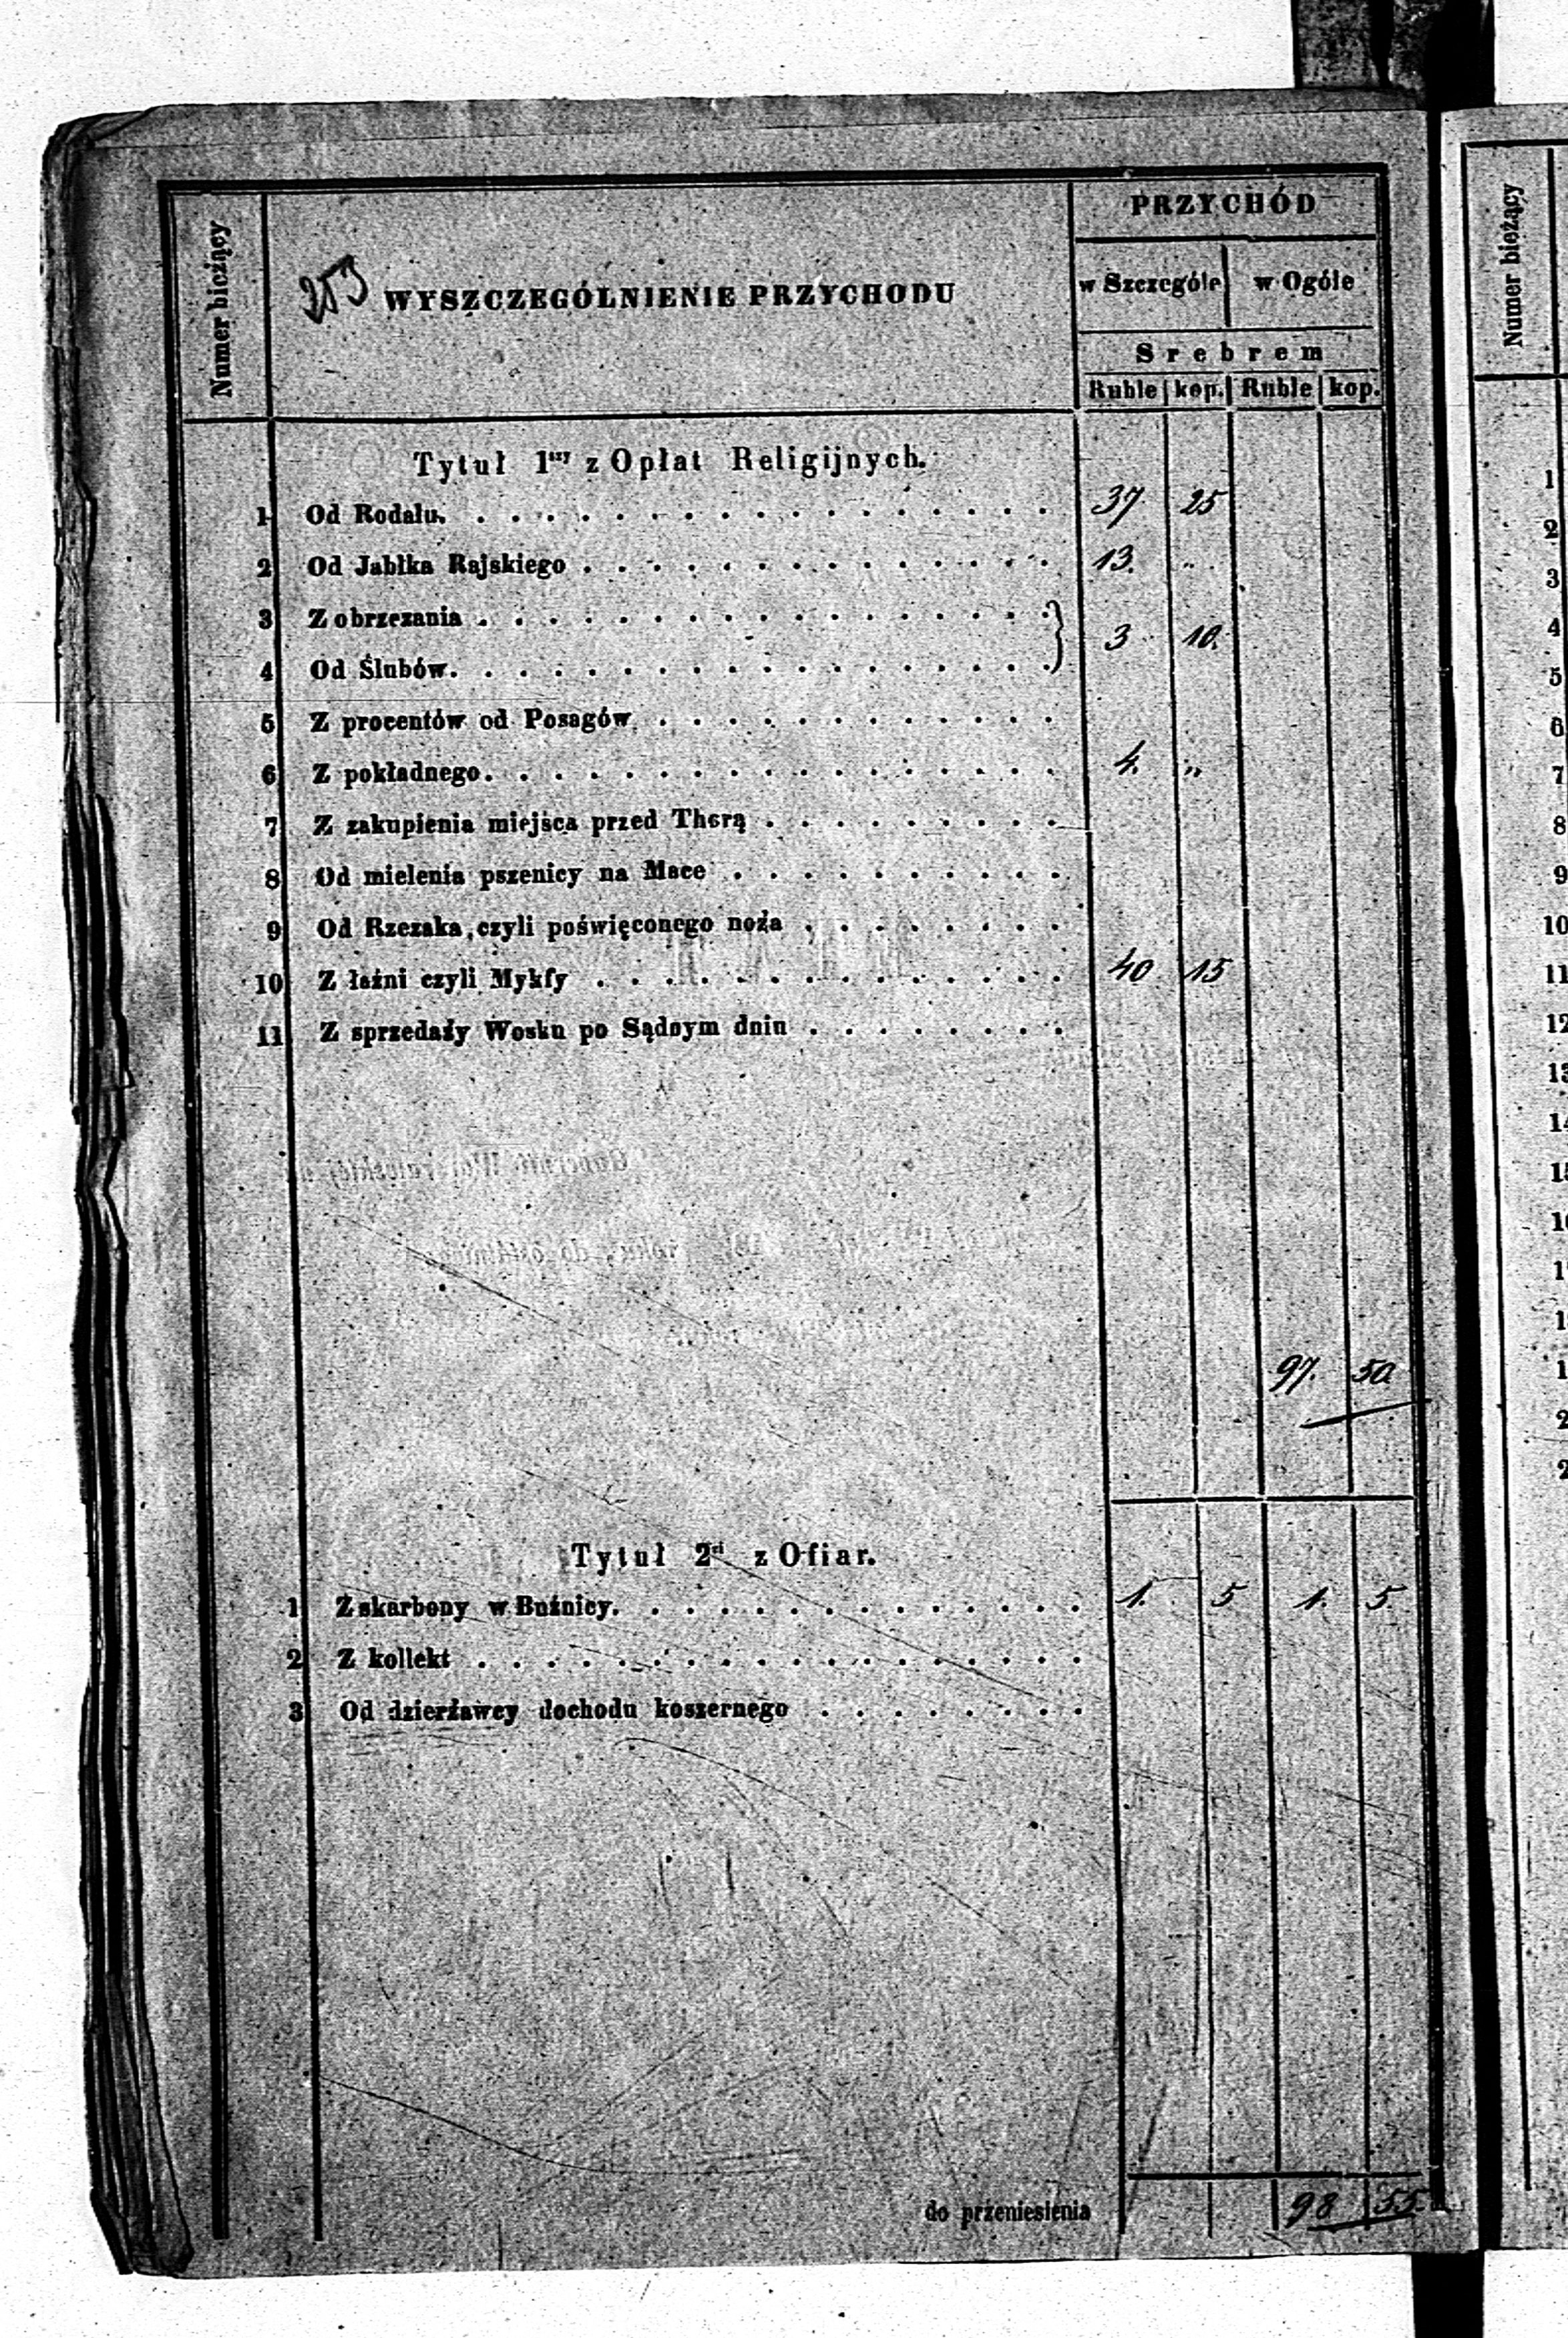 Numer bieżący
253 WYSZCZEGÓLNIENIE PRZYCHODU
PRZYCHÓD
w Szczególe w Ogóle
Srebrem
Ruble kop. Ruble kop.
Tytuł 1szy z Opłat Religijnych.
1 Od Rodału. 37 25
2 Od Jabłka Rajskiego 13. „
3 Z obrzezania
3 10.
4 Od Ślubów.
5 Z procentów od Posagów
6 Z pokładnego. 4. „
7 Z zakupienia miejsca przed Thorą
8 Od mielenia pszenicy na Mace
9 Od Rzezaka, czyli poświęconego noża
10 Z łaźni czyli Mykfy 40 15
11 Z sprzedaży Wosku po Sądnym dniu
97. 50
Tytuł 2gi z Ofiar.
1 Z skarbony w Buźnicy. 1. 5 1. 5
2 Z kollekt
3 Od dzierżawcy dochodu koszernego
do przeniesienia 98 55.
Numer bieżący
1
2
3
4
5
6
7
8
9
10
11
12